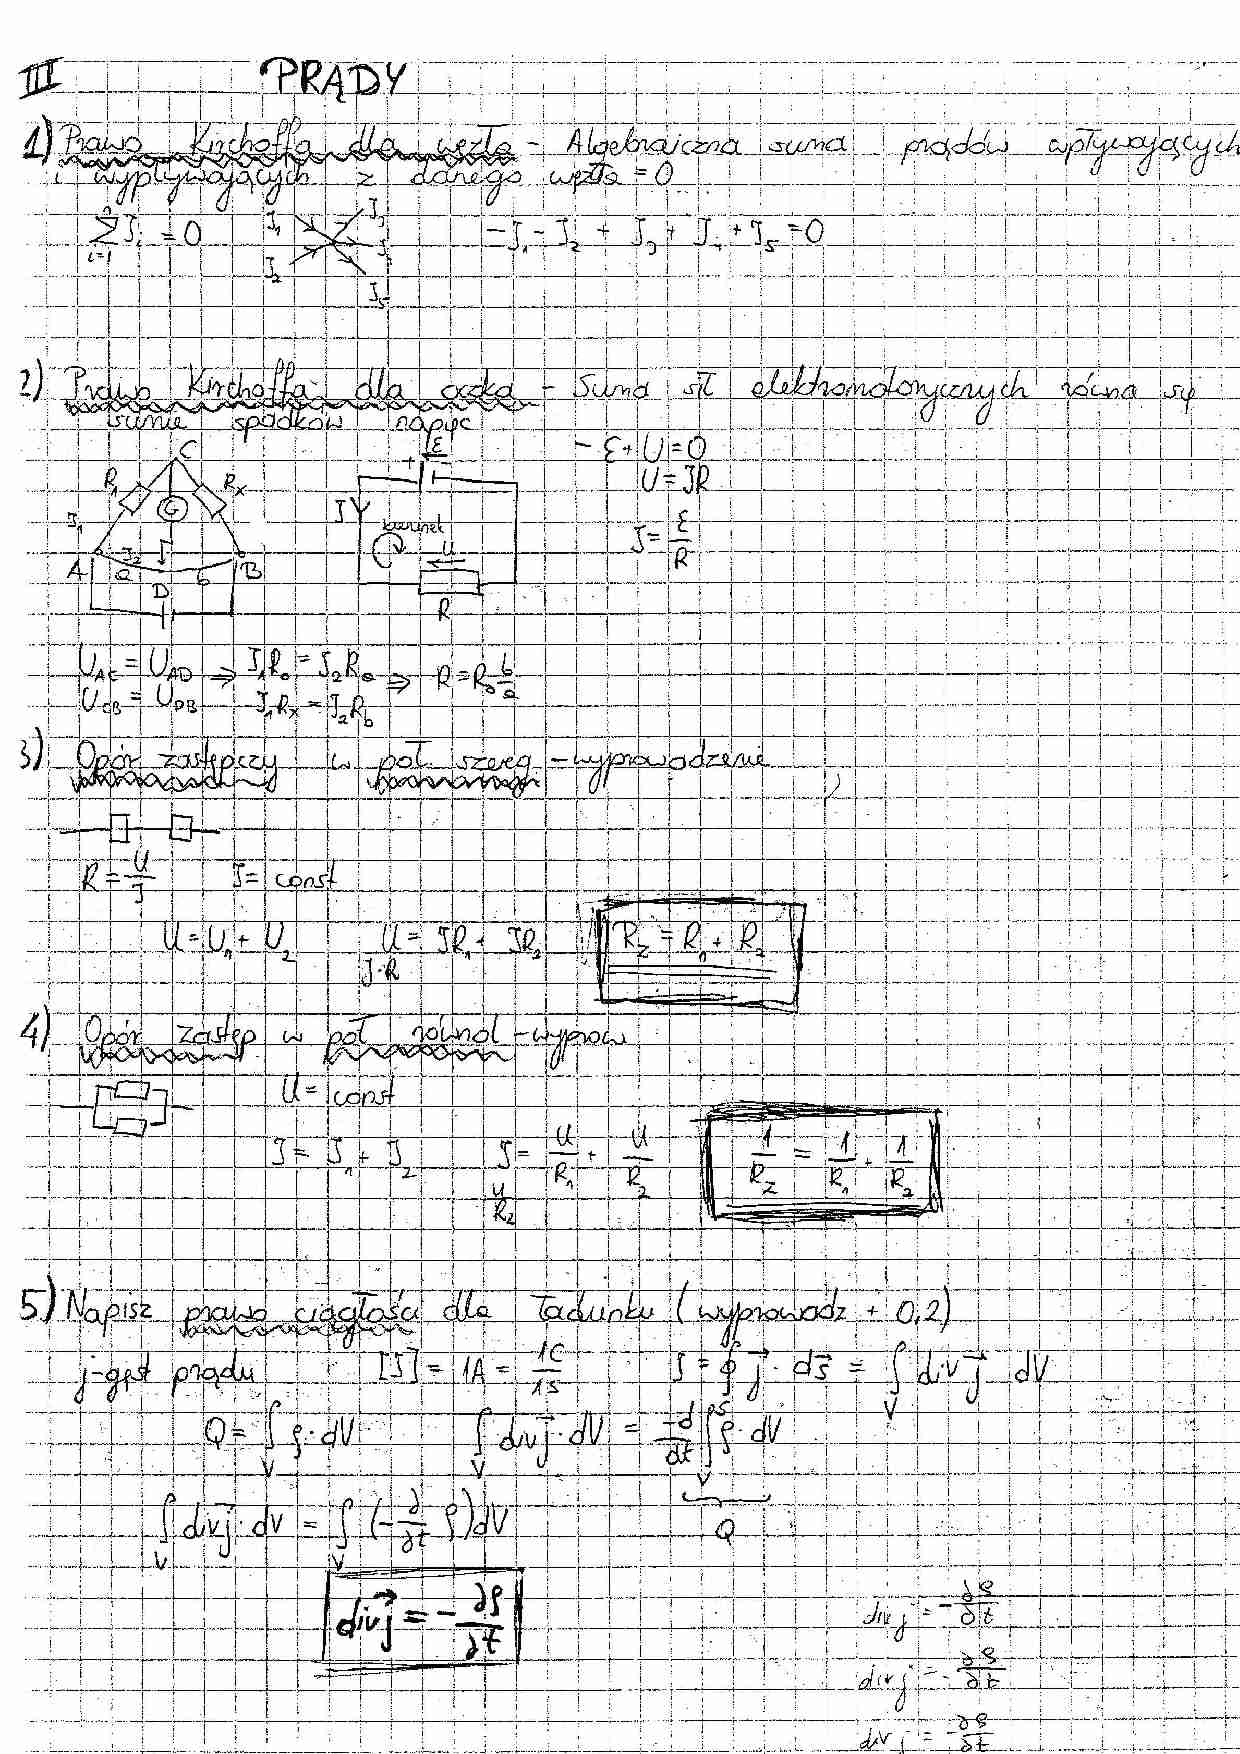 III PRĄDY
1) Prawo Kirchoffa dla węzła - Algebraiczna suma prądów wpływających
i wypływających z danego węzła = 0
n
∑ I_i = 0 I_1 I_3 -I_1 - I_2 + I_3 + I_4 + I_5 = 0
i=1 I_2 I_5
2) Prawo Kirchoffa dla oczka - Suma sił elektromotorycznych równa się
sumie spadków napięć
C ε - ε + U = 0
R_1 R_x + U = IR
G I
I_1 kierunek I = ε/R
I_2 U
A a b B
D R
U_AC = U_AD ⇒ I_1R_0 = I_2R_a ⇒ R = R_0 b/a
U_CB = U_DB I_1R_x = I_2R_b
3) Opór zastępczy w poł. szereg - wyprowadzenie
R = U/I I = const
U = U_1 + U_2 U = IR_1 + IR_2 R_Z = R_1 + R_2
I·R
4) Opór zastęp w poł równol - wyprow
U = const
I = I_1 + I_2 I = U/R_1 + U/R_2 1/R_Z = 1/R_1 + 1/R_2
U/R_Z
5) Napisz prawo ciągłości dla ładunku (wyprowadz + 0,2)
j - gęst prądu [I] = 1A = 1C/1s I = ∮_S j⃗ · ds⃗ = ∫_V div j⃗ dV
Q = ∫_V ρ · dV ∫_V div j⃗ · dV = -d/dt ∫_V ρ · dV
∫_V div j⃗ · dv = ∫_V (-∂/∂t ρ) dV Q
div j⃗ = - ∂ρ/∂t
div j = - ∂ρ/∂t
div j = - ∂ρ/∂t
div j = - ∂ρ/∂t